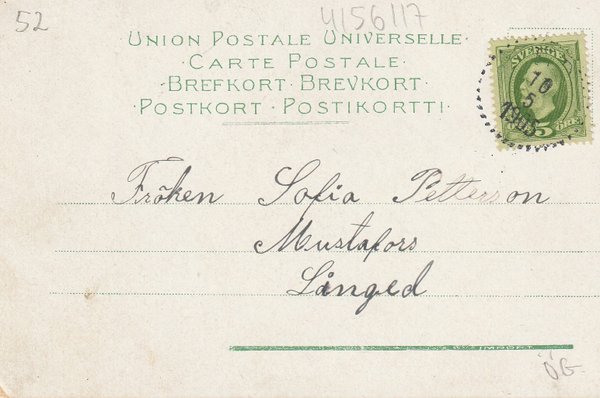 52
4156117
UNION POSTALE UNIVERSELLE.
CARTE POSTALE.
BREFKORT. BREVKORT.
POSTKORT. POSTIKORTTI.
SVERIGE
10
5
1905
5
Fröken Sofia Petterson
Mustafors
Långed
ÖG